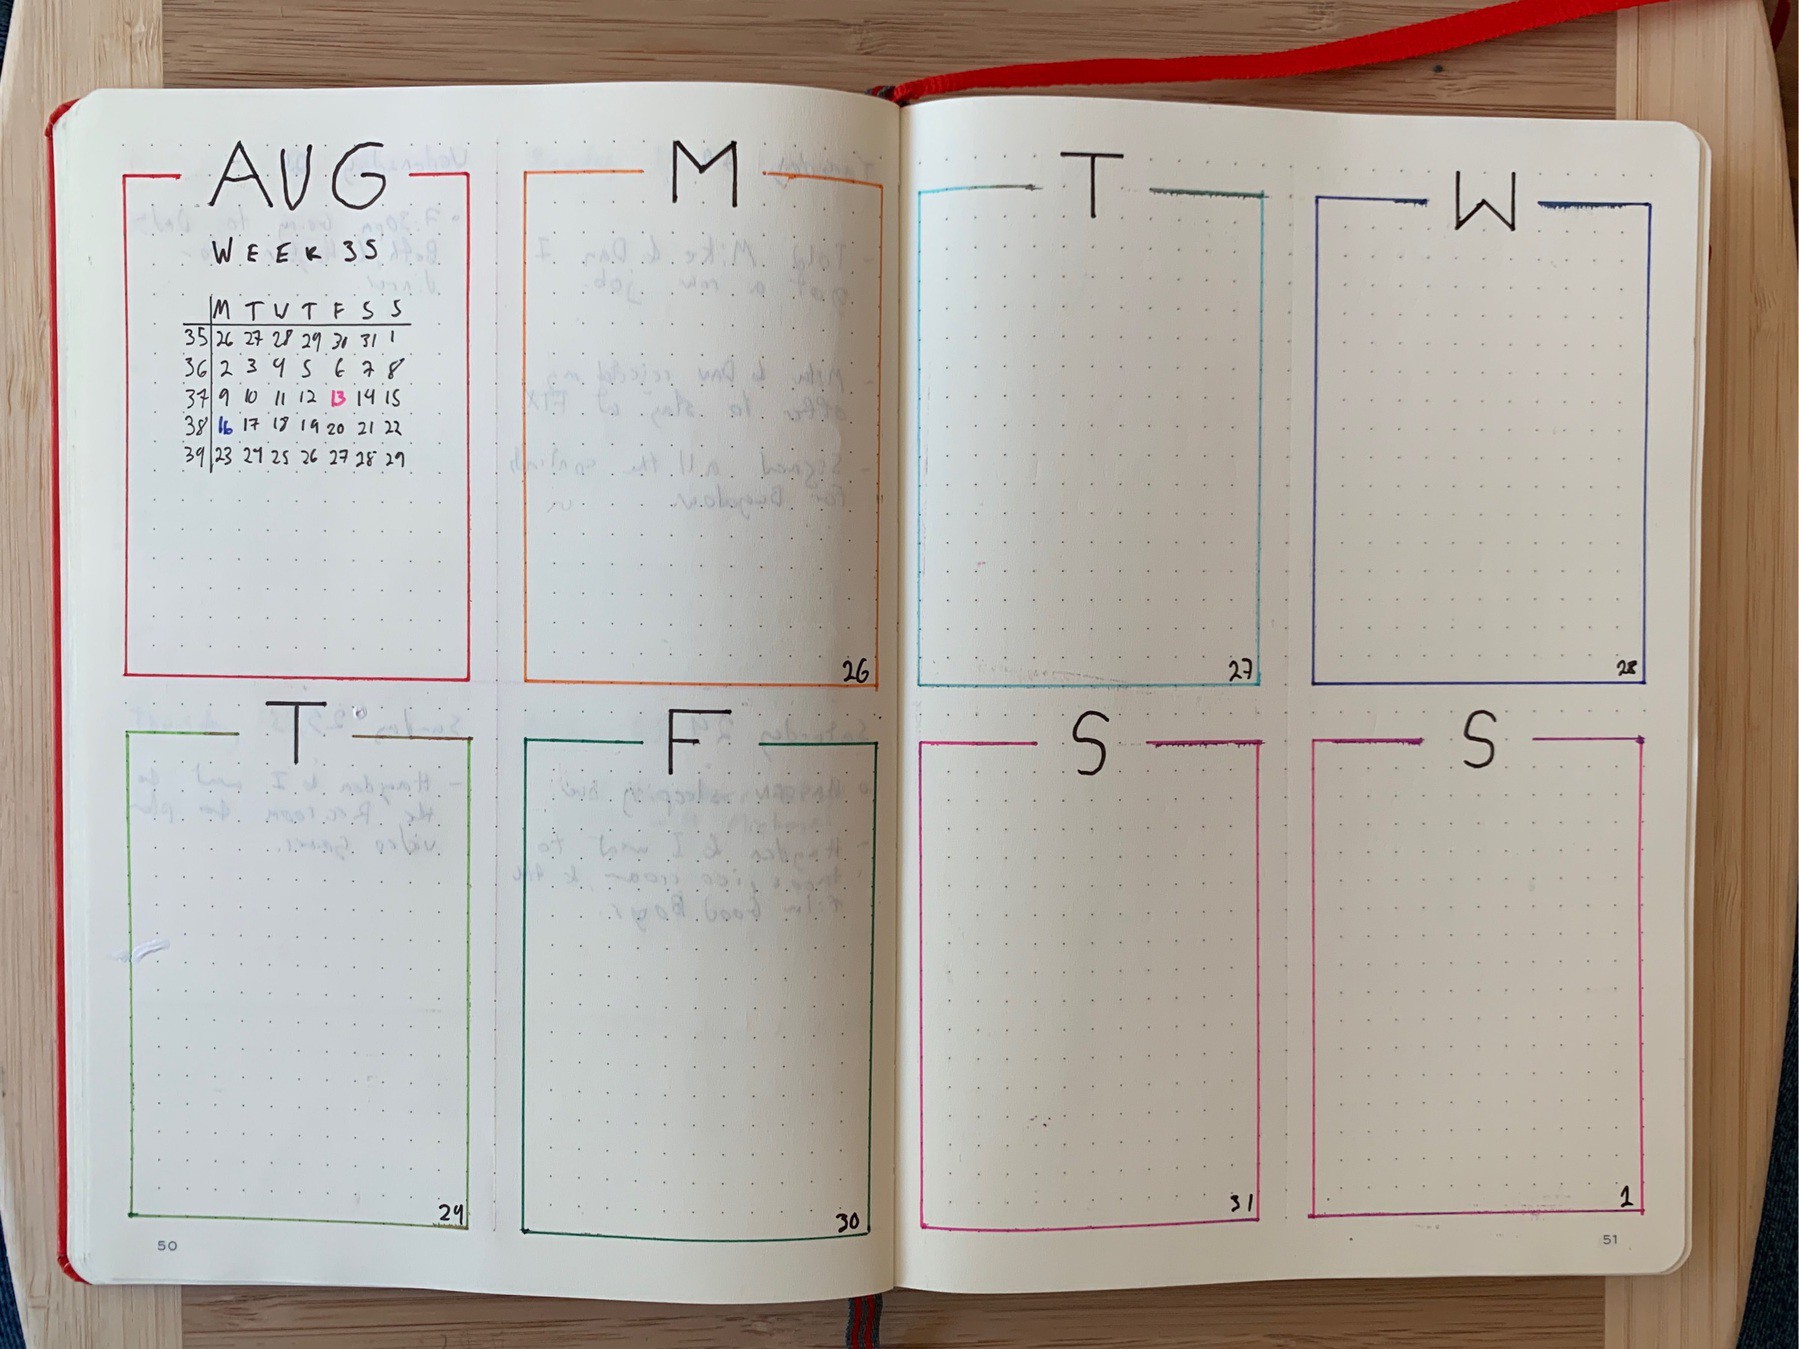 AUG
WEEK 35
M T W T F S S
35 26 27 28 29 30 31 1
36 2 3 4 5 6 7 8
37 9 10 11 12 13 14 15
38 16 17 18 19 20 21 22
39 23 24 25 26 27 28 29
M
26
T
27
W
28
T
29
F
30
S
31
S
1
50
51